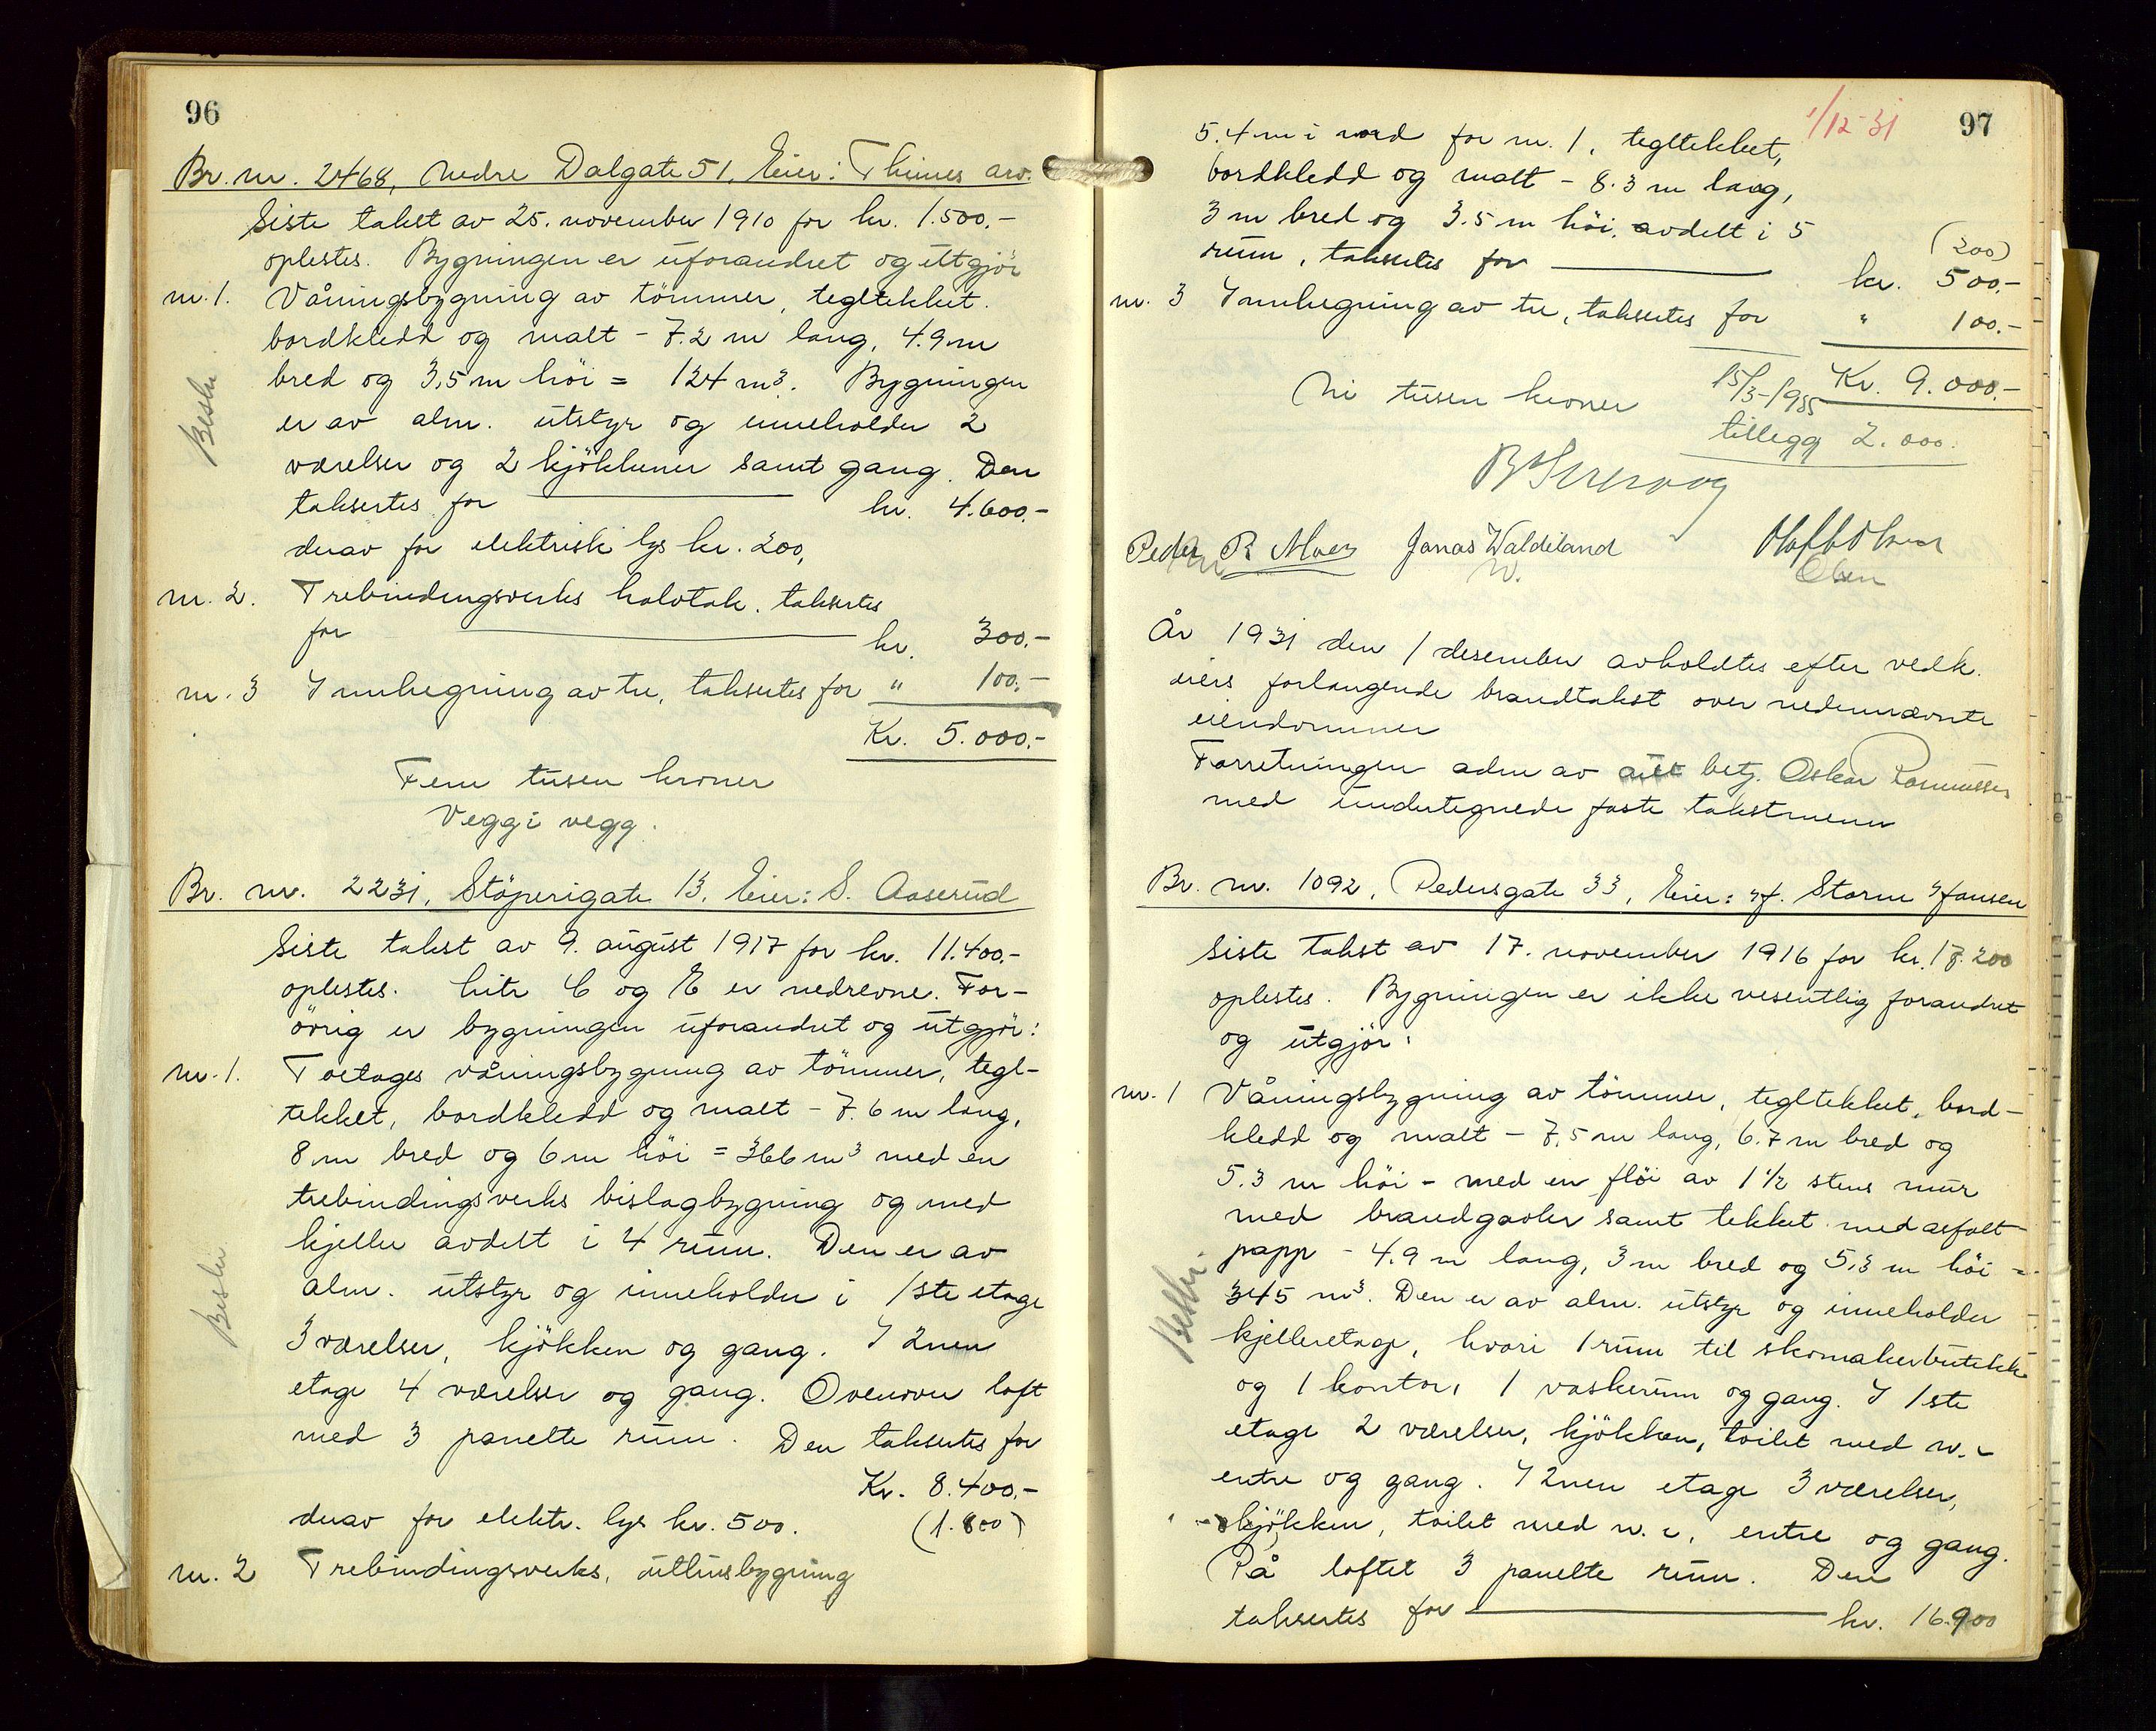 96
Br. nr. 2468, Nedre Dalgate 51, Eier: Thimes arv.
Siste takst av 25. november 1910 for kr. 1.500.-
oplestes. Bygningen er uforandret og utgjör
nr. 1. Våningsbygning av tömmer, tegltekket.
bordkledd og malt - 7.2 m lang, 4.9 m
bred og 3,5 m höi = 124 m³. Bygningen
er av alm. utstyr og inneholder 2
værelser og 2 kjökkener samt gang. Den
taksertes for kr. 4.600.-
derav for elektrisk lys kr. 200,
nr. 2. Trebindingsverks halvtak. taksertes
for kr. 300.-
nr. 3 Innhegning av tre, taksertes for " 100.-
Kr. 5.000.-
Fem tusen kroner
Vegg i vegg.
Br. nr. 2231, Stöperigate 13, Eier: S. Aaserud
Siste takst av 9. august 1917 for kr. 11.400.-
oplestes. Litr C og E er nedrevne. For-
övrig er bygningen uforandret og utgjör:
nr. 1. Toetages våningsbygning av tömmer, tegl-
tekket, bordkledd og malt - 7.6 m lang,
8 m bred og 6 m höi = 366 m³ med en
trebindingsverks bislagbygning og med
kjeller avdelt i 4 rum. Den er av
alm. utstyr og inneholder i 1ste etage
3 værelser, kjökken og gang. I 2nen
etage 4 værelser og gang. Ovenover loft
med 3 panelte rum. Den taksertes for
Kr. 8.400.-
derav for elektr. lys kr. 500. (1.800)
nr. 2 Trebindingsverks, uthusbygning
1/12-31 97
5.4 m i nord for nr. 1, tegltekket,
bordkledd og malt - 8.3 m lang,
3 m bred og 3.5 m höi. avdelt i 5
rum, taksertes for (200)
kr. 500.-
nr. 3 Innhegning av tre, taksertes for " 100.-
Kr. 9.000.-
Ni tusen kroner 15/3-1935
tillegg 2.000.
Peder R Moen Jonas Waldeland
W. Olsen
År 1931 den 1 desember avholdtes efter vedk.
eiers forlangende brandtakst over nedennævnte
eiendommer
Forretningen adm av betj. Oskar Rasmussen
med undertegnede faste takstmenn
Br. nr. 1092, Pedersgate 33, Eier: H. Storm Hansen
Siste takst av 17. november 1916 for kr. 18.200
oplestes. Bygningen er ikke vesentlig forandret
og utgjör:
nr. 1 Våningsbygning av tömmer, tegltekket, bord-
kledd og malt - 7,5 m lang, 6.7 m bred og
5.3 m höi - med en flöi av 1 1/2 stens mur
med brandgavler samt tekket med asfalt
papp - 4.9 m lang, 3 m bred og 5,3 m höi =
345 m³. Den er av alm. utstyr og inneholder
kjelleretage, hvori 1 rum til skomakerbutikk
og 1 kontor, 1 vaskerum og gang. I 1ste
etage 2 værelser, kjökken, toilet med w.c
entre og gang. I 2nen etage 3 værelser,
kjökken, toilet med w.c, entre og gang.
På loftet 3 panelte rum. Den
taksertes for kr. 16.900